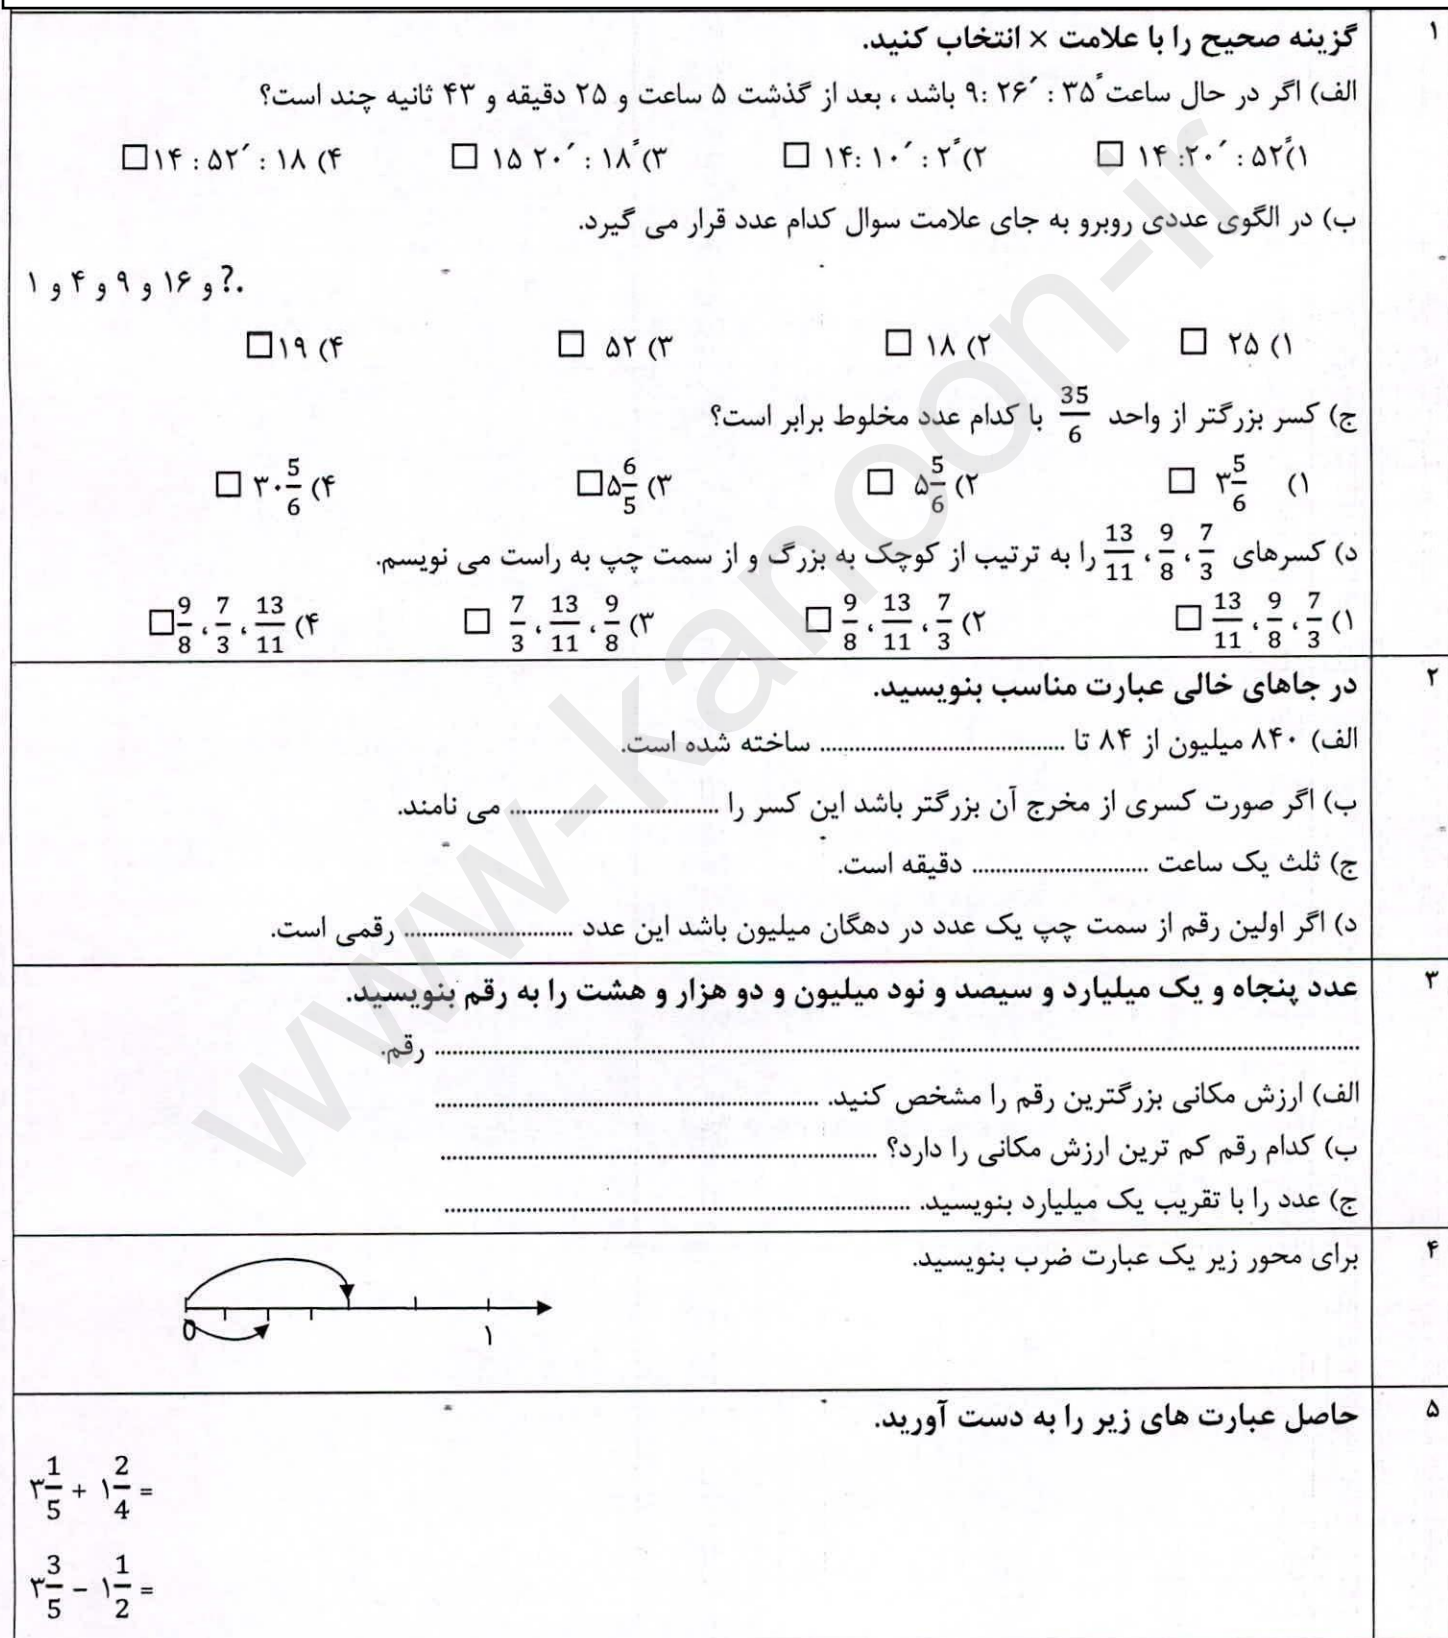 ۱
گزینه صحیح را با علامت × انتخاب کنید.
الف) اگر در حال ساعت ۹: ۲۶´ : ۳۵ً باشد ، بعد از گذشت ۵ ساعت و ۲۵ دقیقه و ۴۳ ثانیه چند است؟
۱) ۱۴ :۲۰´ : ۵۲ً □ ۲) ۱۴: ۱۰´ : ۲ً □ ۳) ۱۵ ۲۰´ : ۱۸ً □ ۴) ۱۴ : ۵۲´ : ۱۸ □
ب) در الگوی عددی روبرو به جای علامت سوال کدام عدد قرار می گیرد.
۱ و ۴ و ۹ و ۱۶ و ?.
۱) ۲۵ □ ۲) ۱۸ □ ۳) ۵۲ □ ۴) ۱۹ □
ج) کسر بزرگتر از واحد 35/6 با کدام عدد مخلوط برابر است؟
۱) ۳ 5/6 □ ۲) ۵ 5/6 □ ۳) ۵ 6/5 □ ۴) ۳۰ 5/6 □
د) کسرهای 7/3 ، 9/8 ، 13/11 را به ترتیب از کوچک به بزرگ و از سمت چپ به راست می نویسم.
۱) 13/11 ، 9/8 ، 7/3 □ ۲) 9/8 ، 13/11 ، 7/3 □ ۳) 7/3 ، 13/11 ، 9/8 □ ۴) 9/8 ، 7/3 ، 13/11 □
۲
در جاهای خالی عبارت مناسب بنویسید.
الف) ۸۴۰ میلیون از ۸۴ تا .......................................... ساخته شده است.
ب) اگر صورت کسری از مخرج آن بزرگتر باشد این کسر را .................................... می نامند.
ج) ثلث یک ساعت .............................. دقیقه است.
د) اگر اولین رقم از سمت چپ یک عدد در دهگان میلیون باشد این عدد ............................. رقمی است.
۳
عدد پنجاه و یک میلیارد و سیصد و نود میلیون و دو هزار و هشت را به رقم بنویسید.
.............................................................................. رقم.
الف) ارزش مکانی بزرگترین رقم را مشخص کنید. ..................................................................
ب) کدام رقم کم ترین ارزش مکانی را دارد؟ ..........................................................................
ج) عدد را با تقریب یک میلیارد بنویسید. ..............................................................................
۴
برای محور زیر یک عبارت ضرب بنویسید.
0 ۱
۵
حاصل عبارت های زیر را به دست آورید.
۳ 1/5 + ۱ 2/4 =
۳ 3/5 − ۱ 1/2 =
www-kanoon-ir